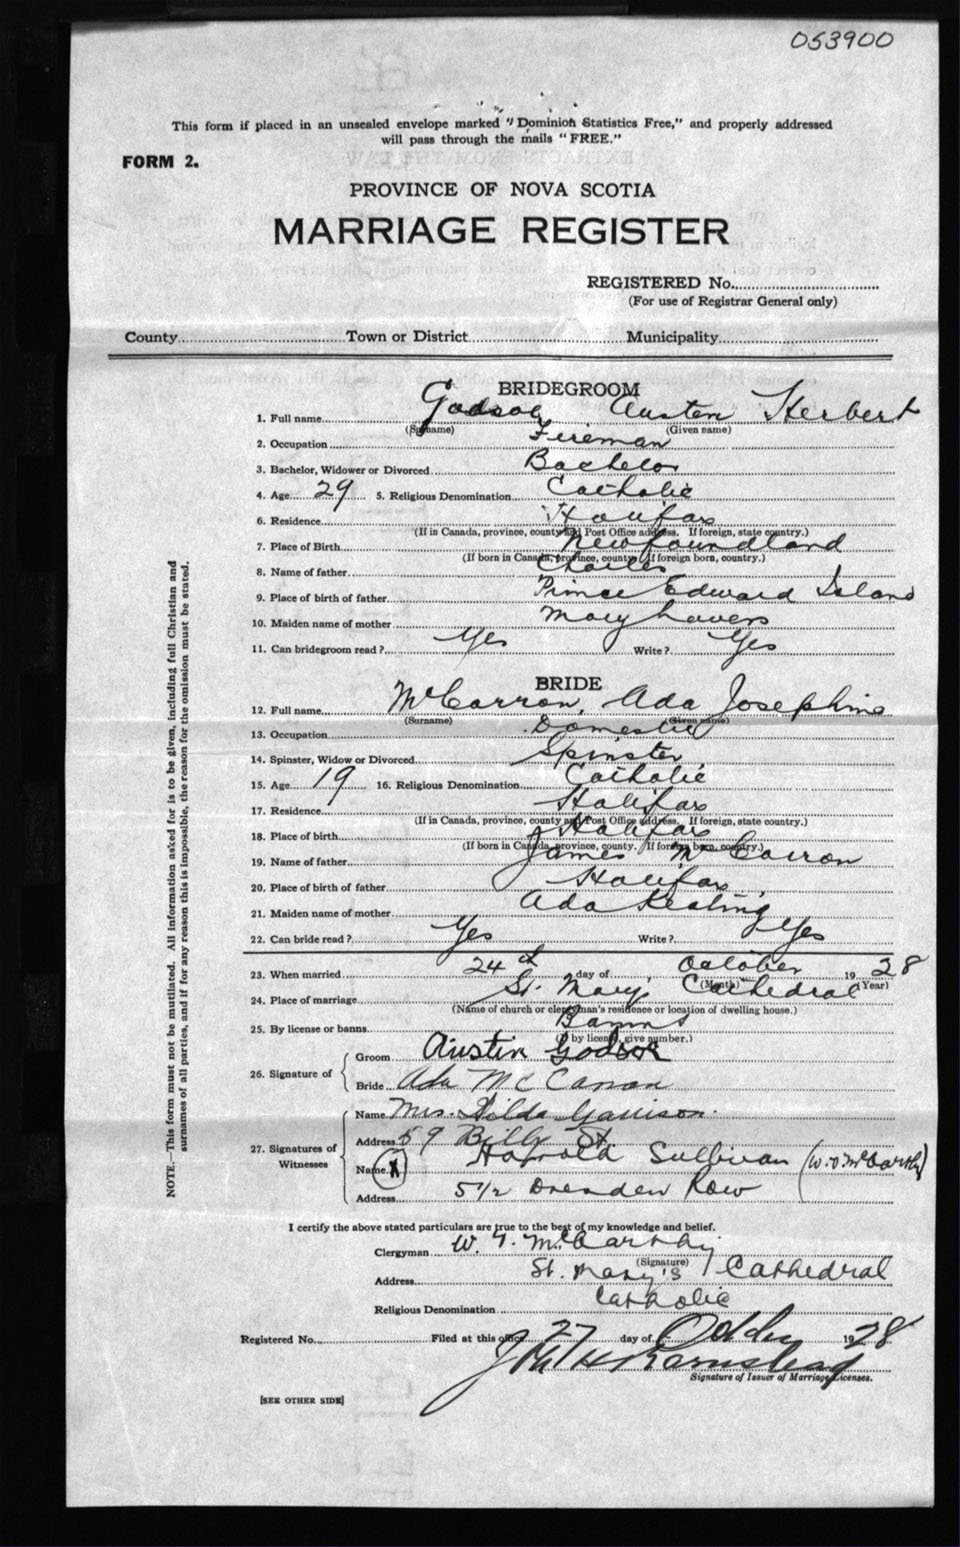 053900
This form if placed in an unsealed envelope marked "Dominion Statistics Free," and properly addressed
will pass through the mails "FREE."
FORM 2.
PROVINCE OF NOVA SCOTIA
MARRIAGE REGISTER
REGISTERED No.
(For use of Registrar General only)
County Town or District Municipality
BRIDEGROOM
1. Full name Godsoe Austen Herbert
(Surname) (Given name)
2. Occupation Fireman
3. Bachelor, Widower or Divorced Bachelor
4. Age 29 5. Religious Denomination Catholic
6. Residence Halifax
(If in Canada, province, county and Post Office address. If foreign, state country.)
7. Place of Birth Newfoundland
(If born in Canada, province, county. If foreign born, country.)
8. Name of father Charles
9. Place of birth of father Prince Edward Island
10. Maiden name of mother Mary Lavers
11. Can bridegroom read? Yes Write? Yes
BRIDE
12. Full name McCarron, Ada Josephine
(Surname) (Given name)
13. Occupation Domestic
14. Spinster, Widow or Divorced Spinster
15. Age 19 16. Religious Denomination Catholic
17. Residence Halifax
(If in Canada, province, county and Post Office address. If foreign, state country.)
18. Place of birth Halifax
(If born in Canada, province, county. If foreign born, country.)
19. Name of father James McCarron
20. Place of birth of father Halifax
21. Maiden name of mother Ada Keating
22. Can bride read? Yes Write? Yes
23. When married 24th day of October 1928
(Month) (Year)
24. Place of marriage St. Mary's Cathedral
(Name of church or clergyman's residence or location of dwelling house.)
25. By license or banns Banns
(If by license, give number.)
26. Signature of Groom Austin Godsoe
Bride Ada McCarron
27. Signatures of Witnesses
Name Mrs. Hilda Garrison
Address 59 Bilby St.
Name X Harold Sullivan (W.G. McCarthy)
Address 51/2 Dresden Row
I certify the above stated particulars are true to the best of my knowledge and belief.
Clergyman W. G. McCarthy
(Signature)
Address St. Mary's Cathedral
Religious Denomination Catholic
Registered No. Filed at this office 27 day of 1928
Signature of Issuer of Marriage Licenses.
[SEE OTHER SIDE]
NOTE.—This form must not be mutilated. All information asked for is to be given, including full Christian and
surnames of all parties, and if for any reason this is impossible, the reason for the omission must be stated.